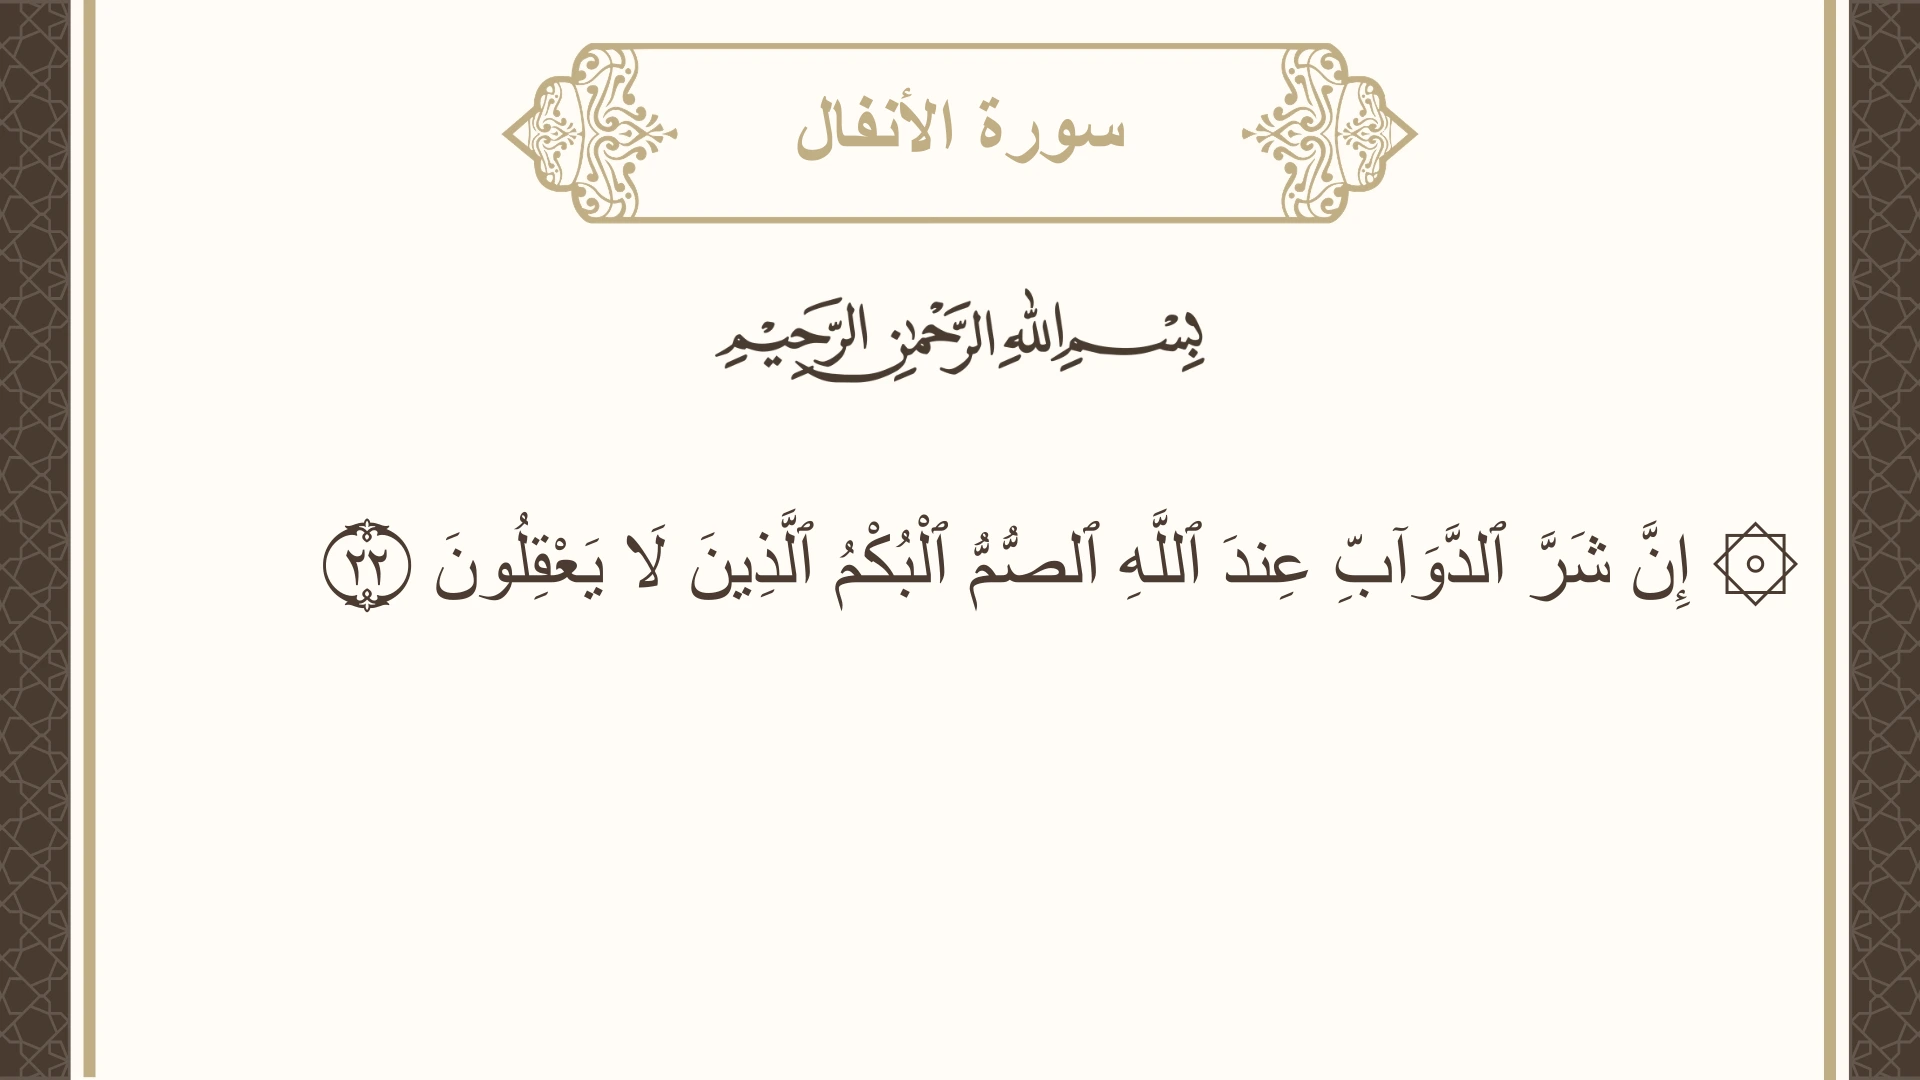 سورة الأنفال
بِسْمِ اللهِ الرَّحْمٰنِ الرَّحِيْمِ
۞ إِنَّ شَرَّ ٱلدَّوَآبِّ عِندَ ٱللَّهِ ٱلصُّمُّ ٱلْبُكْمُ ٱلَّذِينَ لَا يَعْقِلُونَ ٢٢